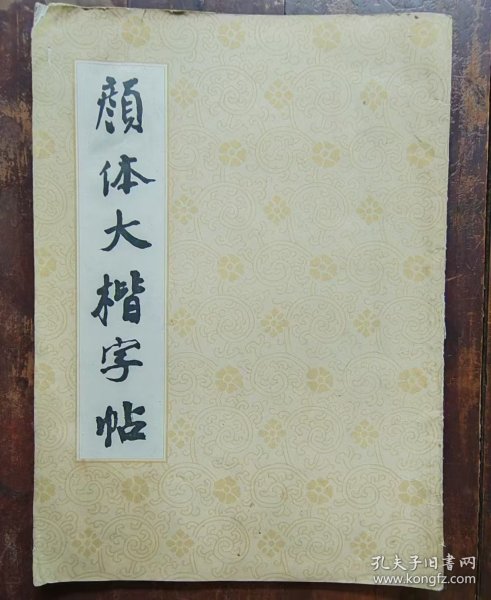 顔体大楷字帖
孔夫子旧书网
www.kongfz.com